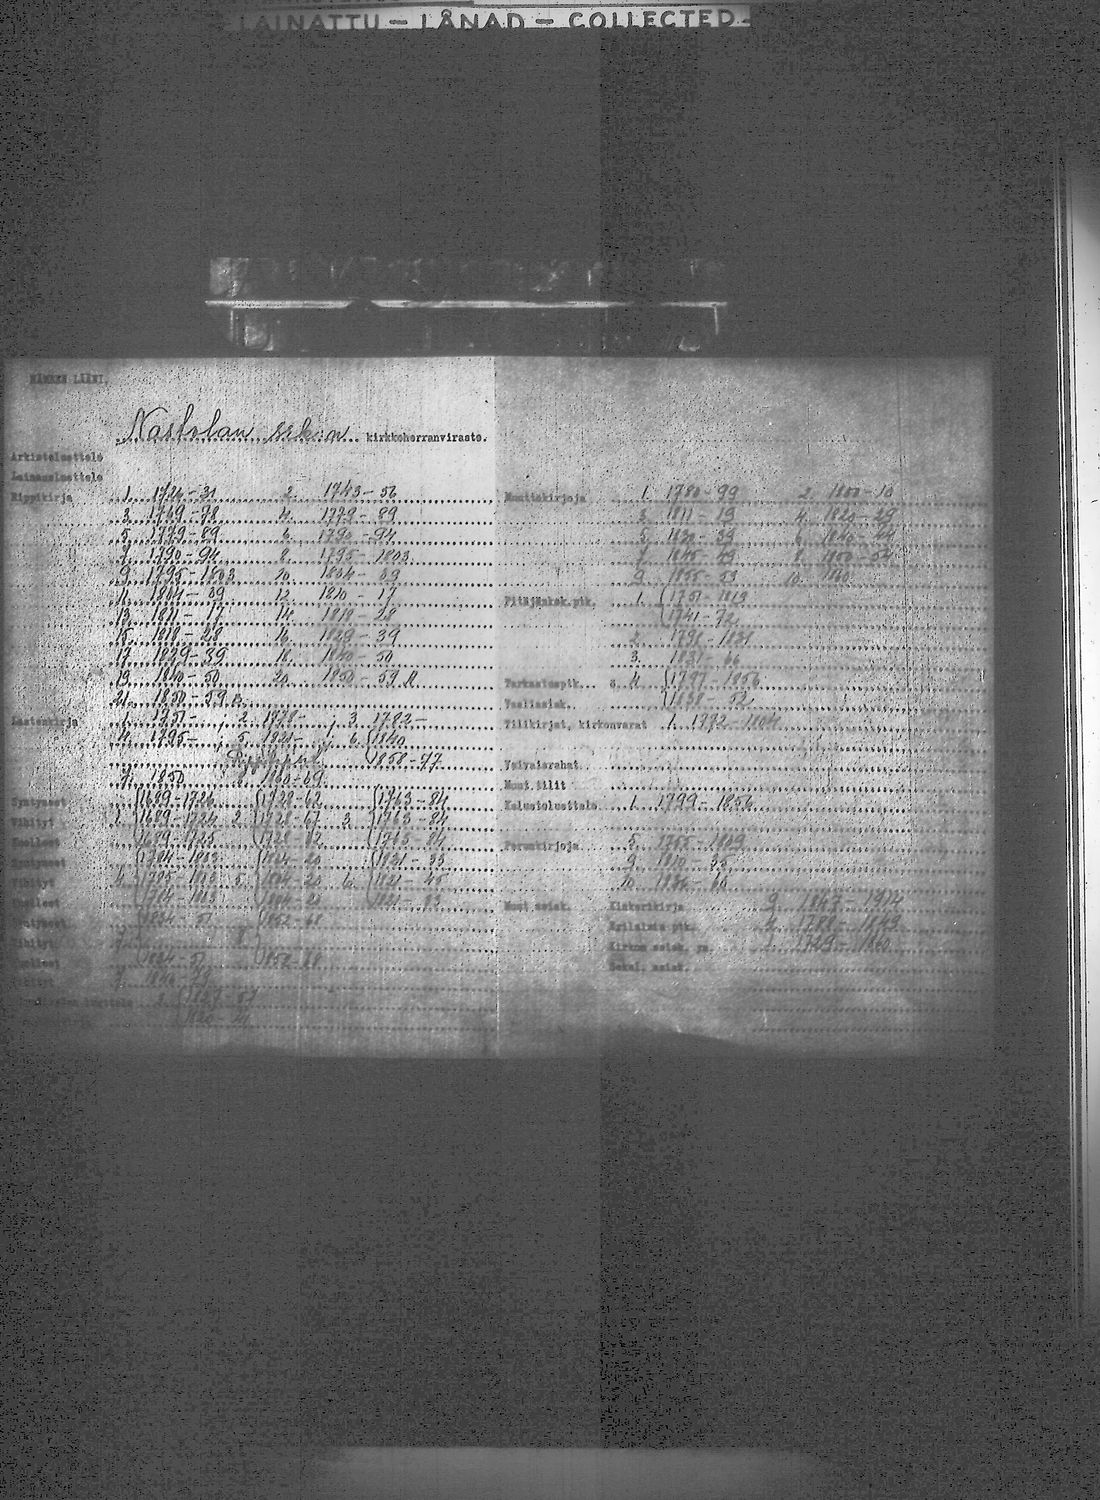 LAINATTU – LÅNAD – COLLECTED –
HÄMEEN LÄÄNI.
Nastolan srk:n kirkkoherranvirasto.
Arkistoluettelo
Lainausluettelo
Rippikirja 1. 1724-31 2. 1743-56
3. 1769-78 4. 1779-89
5. 1779-89 6. 1790-94
7. 1790-94 8. 1795-1803
9. 1795-1803 10. 1804-09
11. 1804-09 12. 1810-17
13. 1811-17 14. 1818-28
15. 1818-28 16. 1829-39
17. 1829-39 18. 1840-50
19. 1840-50 20. 1850-59 A
21. 1850-59 B
Lastenkirja 1. 1751- ; 2. 1778- ; 3. 1782-
4. 1795- ; 5. 1821- ; 6. 1840
1858-77
7. 1850 8. 1860-69
Syntyneet 1689-1726 1728-62 1763-84
Vihityt 1. 1689-1724 2. 1728-67 3. 1763-84
Kuolleet 1689-1725 1728-62 1763-84
Syntyneet 1784-1803 1804-20 1821-33
Vihityt 4. 1785-1803 5. 1804-20 6. 1821-45
Kuolleet 1784-1803 1804-20 1821-33
Syntyneet 1834-51 1852-68
Vihityt 7. 8.
Kuolleet 1834-51 1852-68
Muuttokirjoja 1. 1780-99 2. 1800-10
3. 1811-19 4. 1820-29
5. 1830-39 6. 1840-44
7. 1845-49 8. 1850-54
9. 1855-59 10. 1860
Pitäjänkok.ptk. 1. 1751-1813
1741-72
2. 1791-1831
3. 1831-66
Tarkastusptk. 4. 1797-1856
Vaaliasiak. 1838-52
Tilikirjat, kirkonvarat 1. 1792-1804
Vaivaisrahat
Muut tilit
Kalustoluettelo 1. 1799-1856
Perunkirjoja 8. 1755-1809
9. 1810-35
10. 1836-60
Muut asiak. Kiskerikirja 9. 1847-1914
Erilaisia ptk. 2. 1788-1849
Kirkon asiak. ym. 1. 1729-1860
Sekal. asiak.